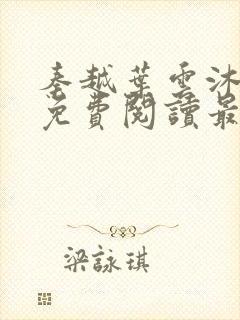 秦越葉雲沐
免費閱讀最
梁詠琪